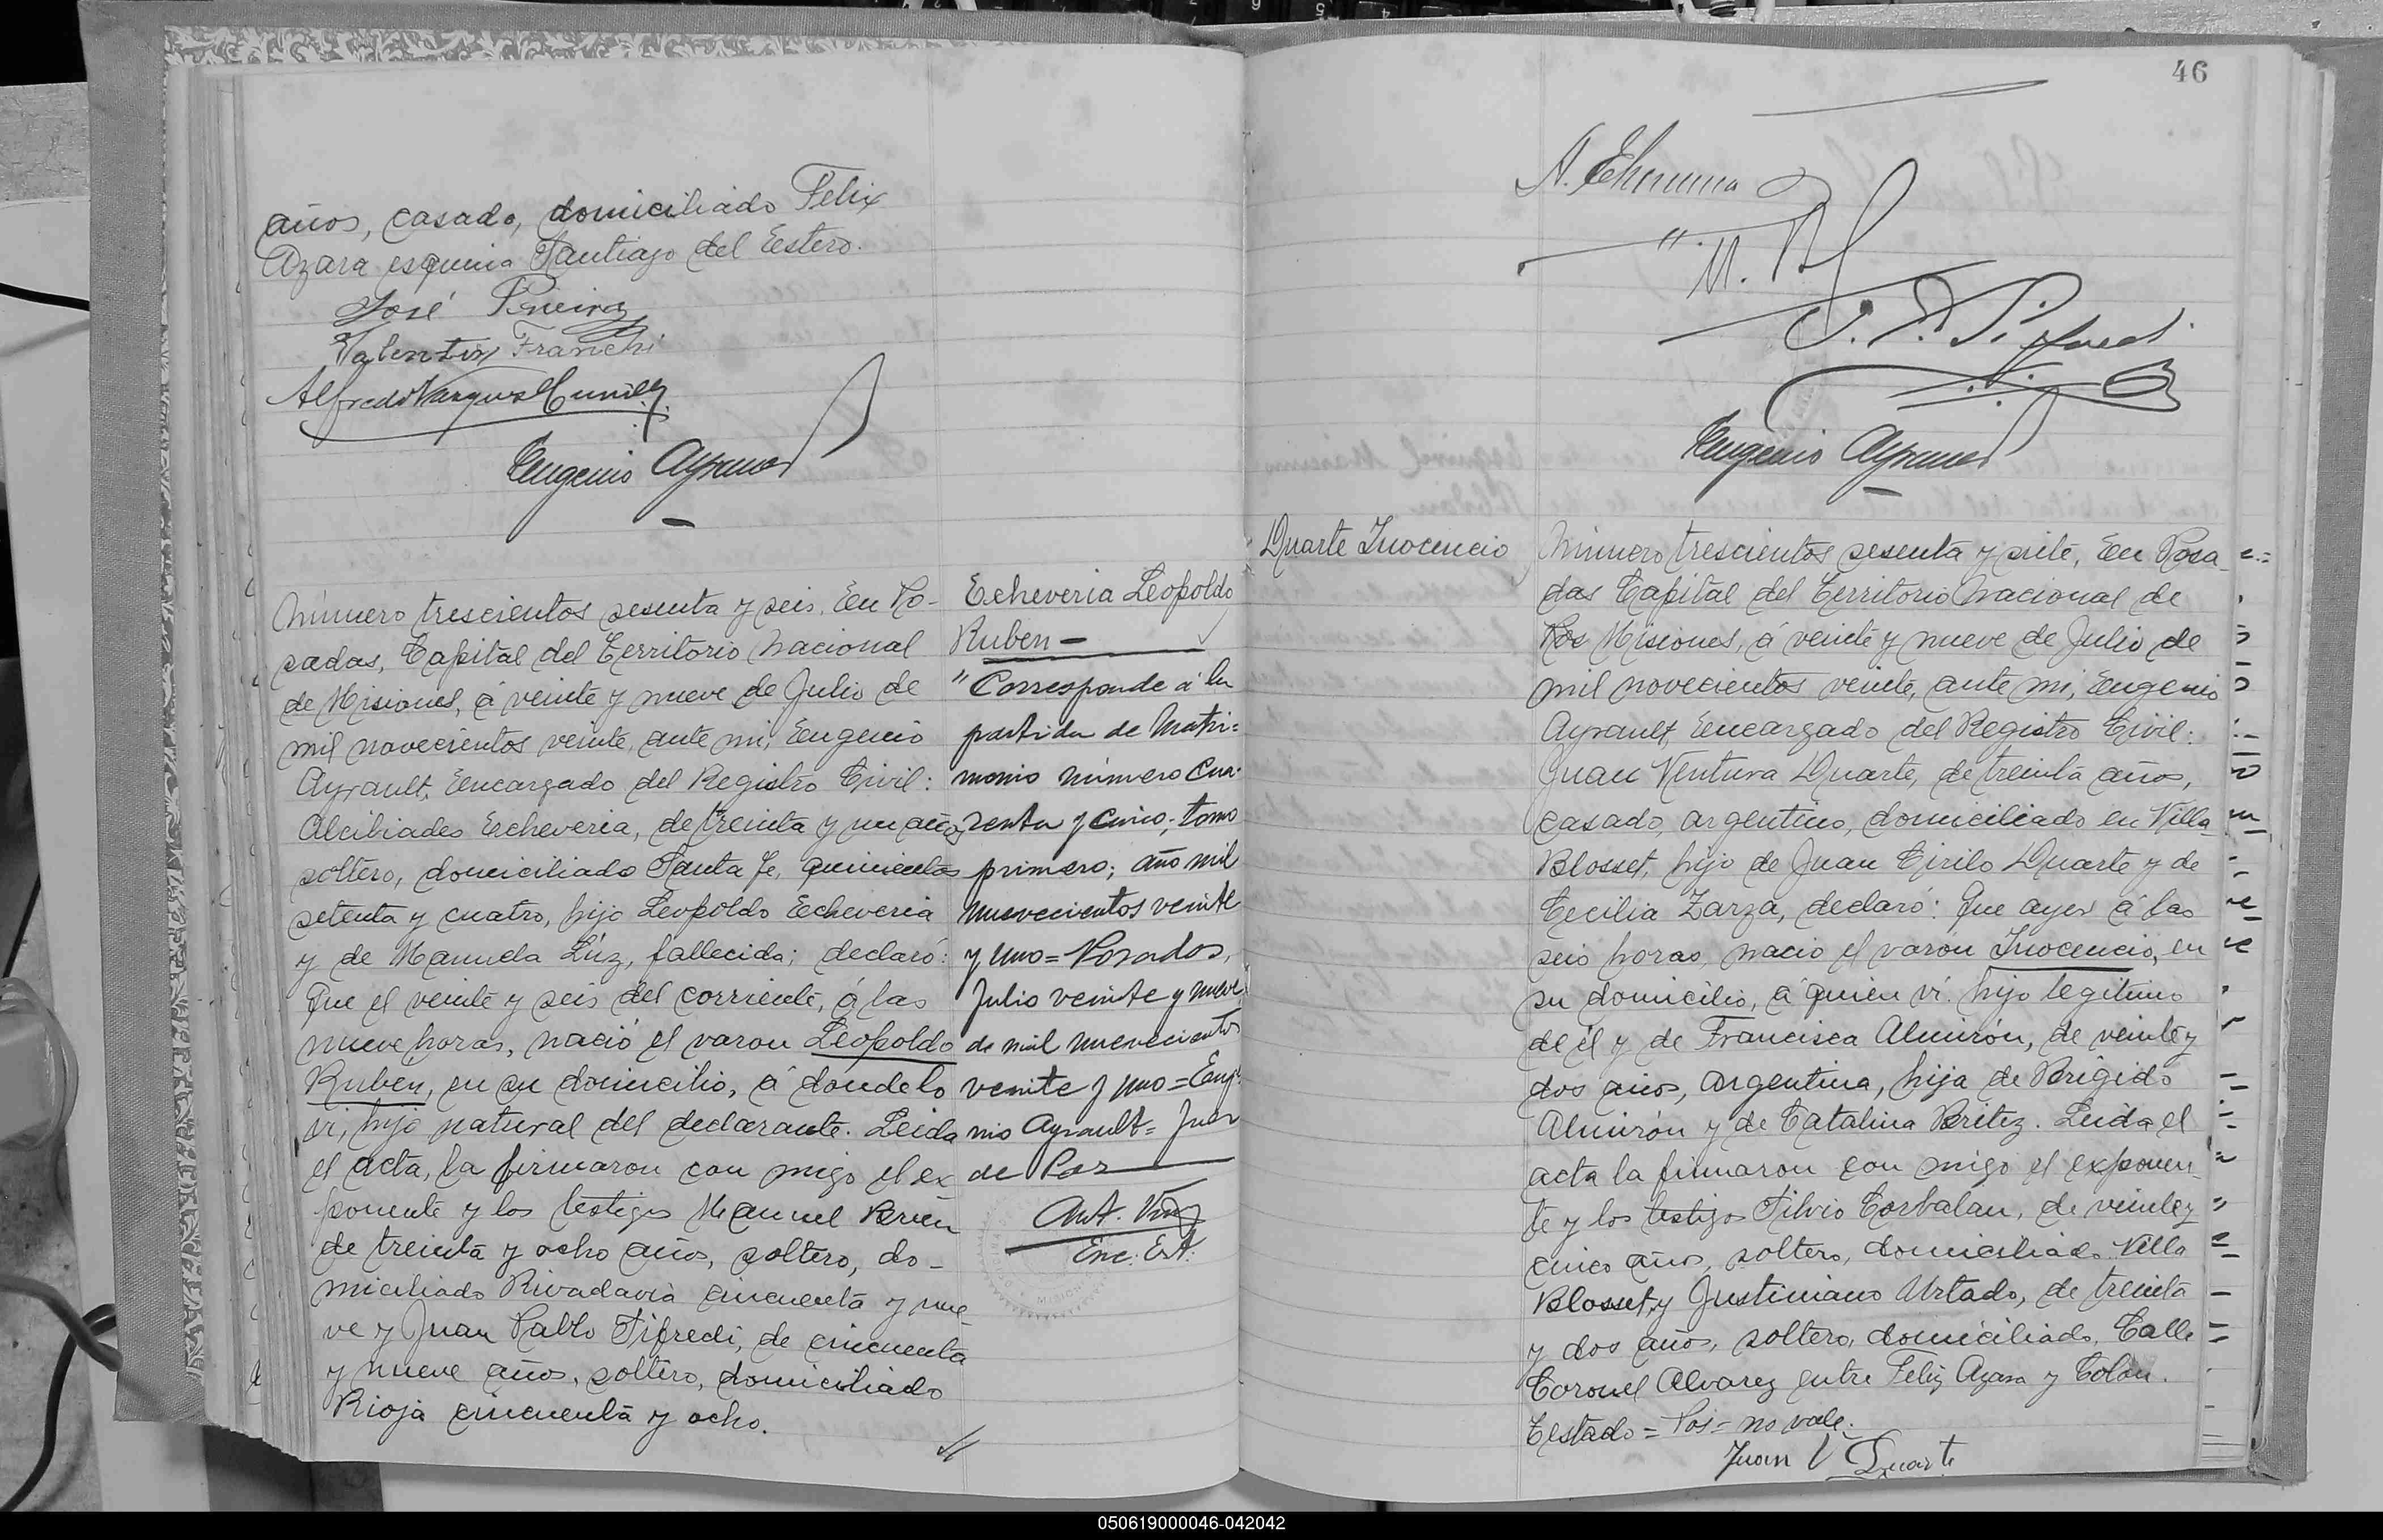 años, casado, domiciliado Felix
Azara esquina Santiago del Estero.
José Pineiro
Valentin Franchi
Alfredo Vargas
Eugenio Ayrault
Número trescientos sesenta y seis, En Po-
sadas, Capital del Territorio Nacional
de Misiones, á veinte y nueve de Julio de
mil novecientos veinte, ante mi, Eugenio
Ayrault, Encargado del Registro Civil:
Alcibiades Echeveria, de treinta y un años,
soltero, domiciliado Santa Fe, quinientos
setenta y cuatro, hijo Leopoldo Echeveria
y de Manuela Lúz, fallecida; declaró:
Que el veinte y seis del corriente, á las
nueve horas, nació el varon Leopoldo
Ruben, en su domicilio, á donde lo
vi, hijo natural del declarante. Leida
el acta, la firmaron con migo el ex
ponente y los testigos Manuel
de treinta y ocho años, soltero, do-
miciliado Rivadavia cincuenta y nue
ve y Juan Pablo Sifredi, de cincuenta
y nueve años, soltero, domiciliado
Rioja cincuenta y ocho.
Echeveria Leopoldo
Ruben -
"Corresponde á la
partida de Matri=
monio número cua-
renta y cinco; tomo
primero; año mil
nuevecientos veinte
y uno = Posadas,
Julio veinte y nueve
de mil nuevecientos
veinte y uno = Euge
nio Ayrault = Juez
de Paz
Ant.
Enc. Est.
46
A.
M.
Eugenio Ayrault
Duarte Inocencio
Número trescientos sesenta y siete, En Posa-
das Capital del Territorio Nacional de
Pos Misiones, á veinte y nueve de Julio de
mil novecientos veinte, ante mi, Eugenio
Ayrault, Encargado del Registro Civil:
Juan Ventura Duarte, de treinta años,
casado, argentino, domiciliado en Villa
Blosset, hijo de Juan Cirilo Duarte y de
Cecilia Zarza, declaró: Que ayer á las
seis horas, nació el varon Inocencio, en
su domicilio, á quien vi. hijo legitimo
de él y de Francisca Almirón, de veinte y
dos años, argentina, hija de Brigido
Almirón y de Catalina Britez. Leida el
acta la firmaron con migo el exponen
te y los testigos Silvio Corbalan, de veinte y
cinco años, soltero, domiciliado Villa
Blosset, y Justiniano Urtado, de treinta
y dos años, soltero, domiciliado, Calle
Coronel Alvarez entre Felix Azara y Colon.
Testado = Pos = no vale.
Juan V Duarte
050619000046-042042